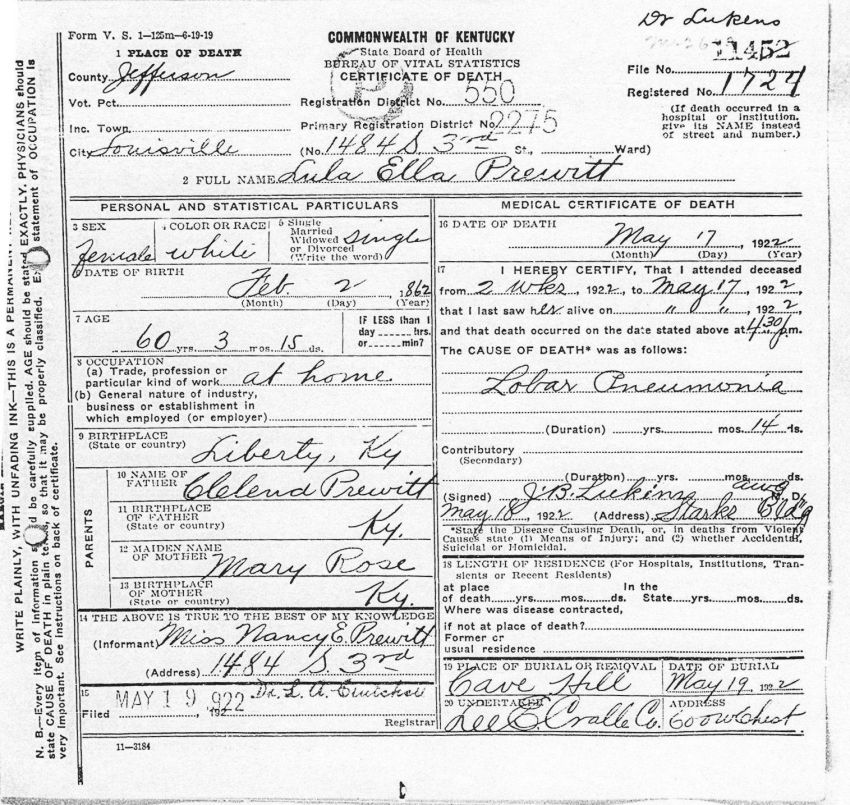 Dr Lukens
Form V. S. 1—125m—6-19-19
COMMONWEALTH OF KENTUCKY
State Board of Health
BUREAU OF VITAL STATISTICS
CERTIFICATE OF DEATH
1 PLACE OF DEATH
County Jefferson
File No. 11452
Registered No. 1724
Vot. Pct.
Registration District No. 550
(If death occurred in a hospital or institution, give its NAME instead of street and number.)
Inc. Town
Primary Registration District No. 2275
City Louisville (No. 1484 S. 3rd St., Ward)
2 FULL NAME Lula Ella Prewitt
PERSONAL AND STATISTICAL PARTICULARS
3 SEX female
4 COLOR OR RACE white
5 Single Married Widowed or Divorced (Write the word) single
6 DATE OF BIRTH
Feb. 2, 1862
(Month) (Day) (Year)
7 AGE
60 yrs. 3 mos. 15 ds.
IF LESS than 1 day ...... hrs. or ...... min?
8 OCCUPATION
(a) Trade, profession or particular kind of work at home
(b) General nature of industry, business or establishment in which employed (or employer)
9 BIRTHPLACE
(State or country) Liberty, Ky
PARENTS
10 NAME OF FATHER Clelend Prewitt
11 BIRTHPLACE OF FATHER (State or country) Ky.
12 MAIDEN NAME OF MOTHER Mary Rose
13 BIRTHPLACE OF MOTHER (State or country) Ky.
14 THE ABOVE IS TRUE TO THE BEST OF MY KNOWLEDGE
(Informant) Miss Nancy E. Prewitt
(Address) 1484 S. 3rd
15
Filed MAY 19 1922, 192 Dr. L. A.
Registrar
11—3184
MEDICAL CERTIFICATE OF DEATH
16 DATE OF DEATH
May 17, 1922
(Month) (Day) (Year)
17 I HEREBY CERTIFY, That I attended deceased
from 2 wks, 1922, to May 17, 1922,
that I last saw her alive on " ", 1922,
and that death occurred on the date stated above at 4:30 p.m.
The CAUSE OF DEATH* was as follows:
Lobar Pneumonia
(Duration) yrs. mos. 14 ds.
Contributory
(Secondary)
(Duration) yrs. mos. ds.
(Signed) J.B. Lukins M. D.
May 18, 1922 (Address) Starks Bldg
*State the Disease Causing Death, or, in deaths from Violent
Causes state (1) Means of Injury; and (2) whether Accidental,
Suicidal or Homicidal.
18 LENGTH OF RESIDENCE (For Hospitals, Institutions, Tran-
sients or Recent Residents)
at place In the
of death yrs. mos. ds. State yrs. mos. ds.
Where was disease contracted,
if not at place of death?
Former or
usual residence
19 PLACE OF BURIAL OR REMOVAL
Cave Hill
DATE OF BURIAL
May 19, 1922
20 UNDERTAKER
Lee E. Cralle Co.
ADDRESS
600 W Chest.
WRITE PLAINLY, WITH UNFADING INK—THIS IS A PERMANENT
N. B.—Every item of information should be carefully supplied. AGE should be stated EXACTLY. PHYSICIANS should
state CAUSE OF DEATH in plain terms, so that it may be properly classified. Exact statement of OCCUPATION is
very important. See instructions on back of certificate.